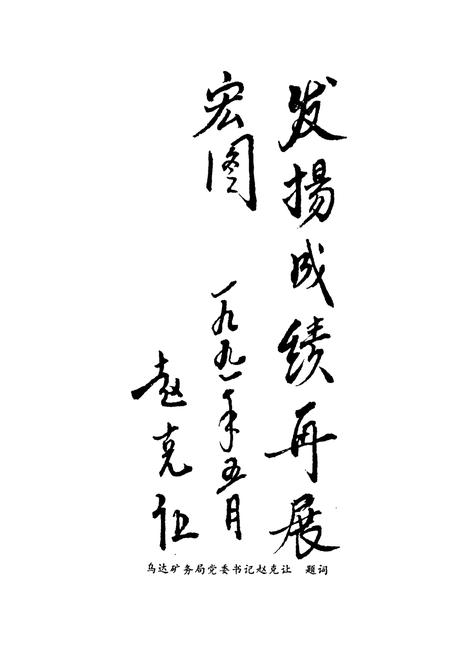 发揚成绩再展
宏图
一九九一年五月
赵克让
乌达矿务局党委书记赵克让 题词